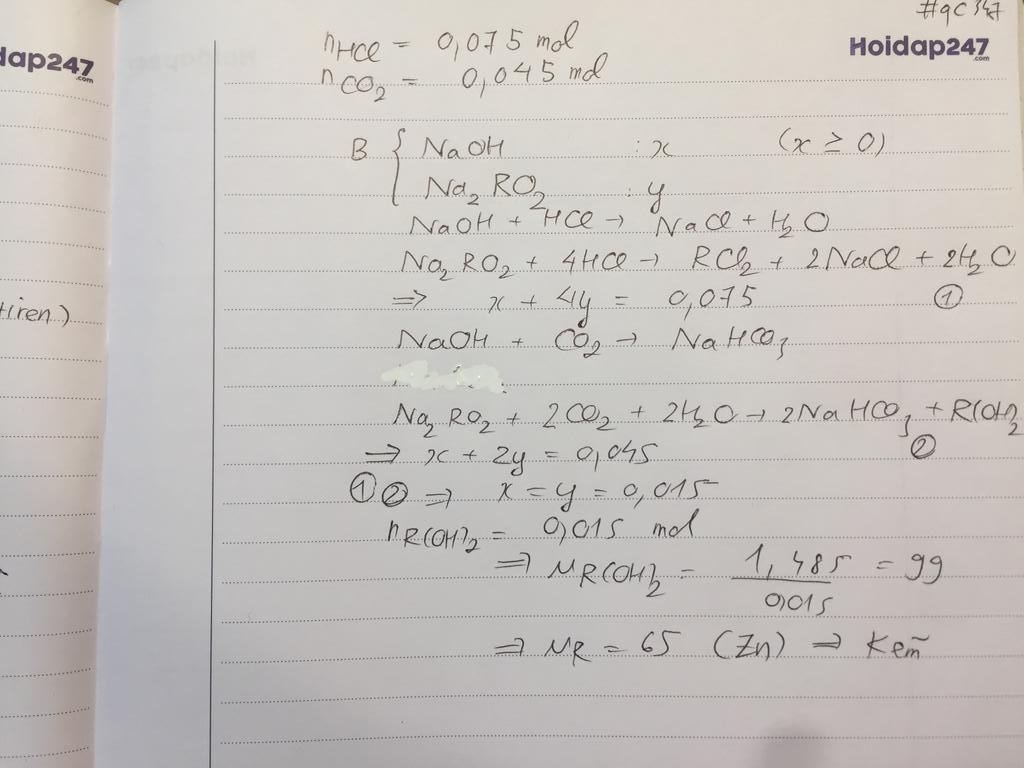 #gc347
dap247
.com
Hoidap247
.com
nHCl = 0,075 mol
nCO2 = 0,045 mol
B { NaOH : x (x ≥ 0)
Na2RO2 : y
NaOH + HCl → NaCl + H2O
Na2RO2 + 4HCl → RCl2 + 2NaCl + 2H2O
⇒ x + 4y = 0,075 ①
NaOH + CO2 → NaHCO3
Na2RO2 + 2CO2 + 2H2O → 2NaHCO3 + R(OH)2
⇒ x + 2y = 0,045 ②
①② ⇒ x = y = 0,015
nR(OH)2 = 0,015 mol
⇒ MR(OH)2 = 1,485 / 0,015 = 99
⇒ MR = 65 (Zn) ⇒ Kẽm